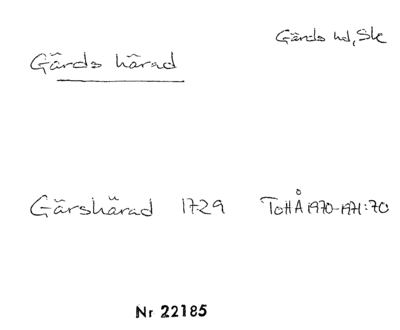 Gärds hd, Sk
Gärds härad
Gärshärad 1729 ToHÅ 1970-1971:70
Nr 22185